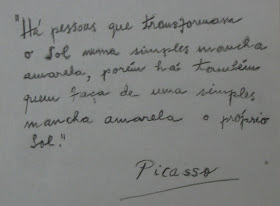 "Há pessoas que transformam
o Sol numa simples mancha
amarela, porém há também
quem faça de uma simples
mancha amarela o próprio
Sol."
Picasso